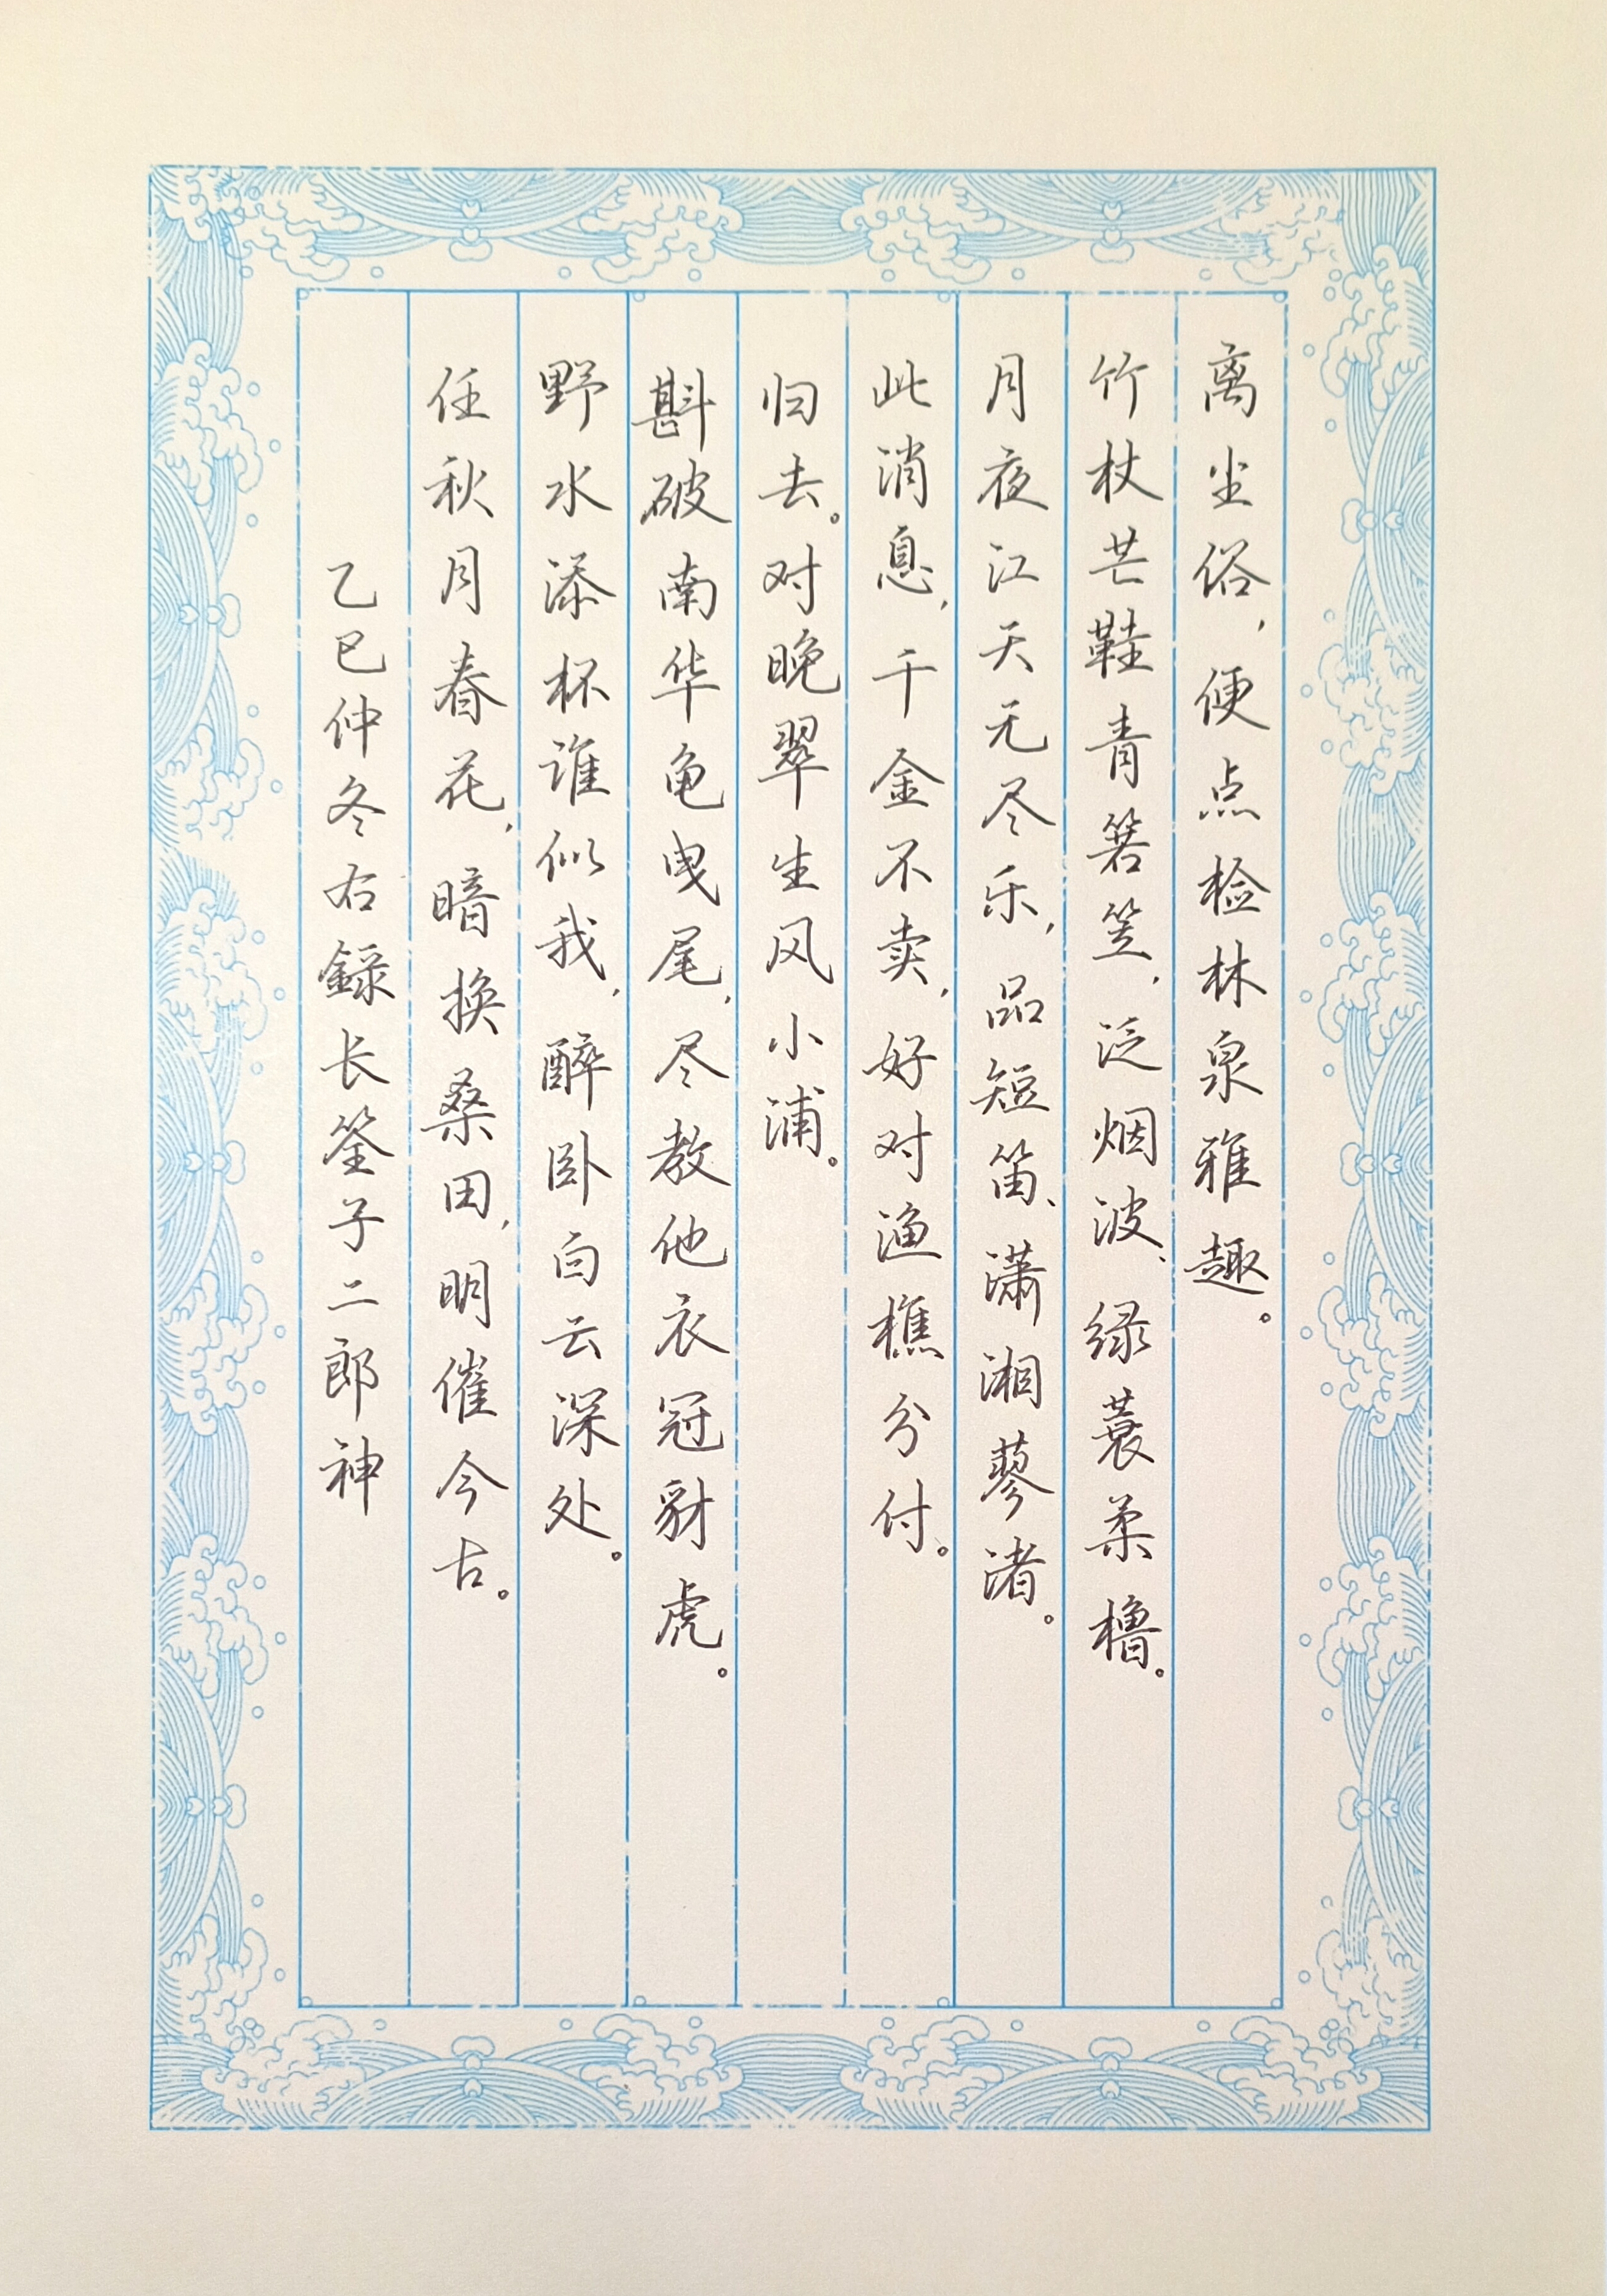 离尘俗，便点检林泉雅趣。
竹杖芒鞋青箬笠，泛烟波、绿蓑柔橹。
月夜江天无尽乐，品短笛、潇湘蓼渚。
此消息，千金不卖，好对渔樵分付。
归去。对晚翠生风小浦。
斟破南华龟曳尾，尽教他衣冠豺虎。
野水添杯谁似我，醉卧白云深处。
任秋月春花，暗换桑田，明催今古。
乙巳仲冬右録长筌子二郎神